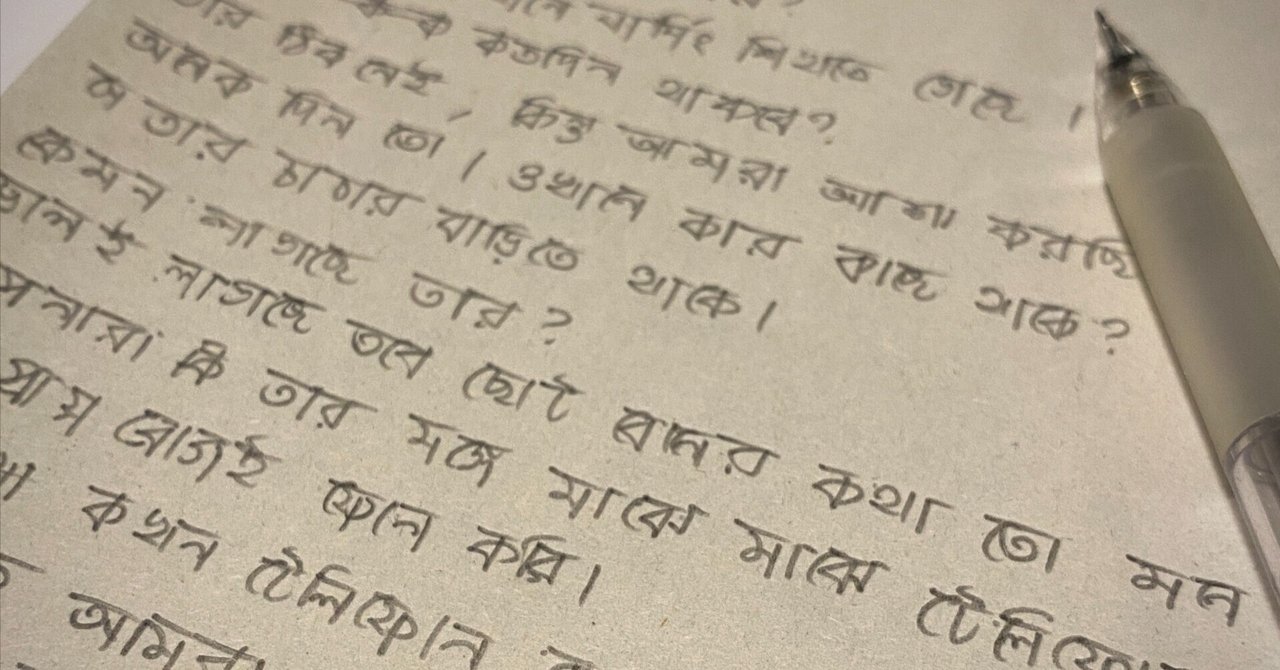 শিখতে গেছে ।
কতদিন থাকবে?
তার ঠিক নেই, কিন্তু আমরা আশা করছি
অনেক দিন তো । ওখানে কার কাছে থাকে?
সে তার চাচার বাড়িতে থাকে।
কেমন লাগছে তার?
ভালই লাগছে তবে ছোট বোনের কথা তো মনে
কি তার সঙ্গে মাঝে মাঝে
প্রায় রোজই ফোন করি।
কখন টেলিফোন